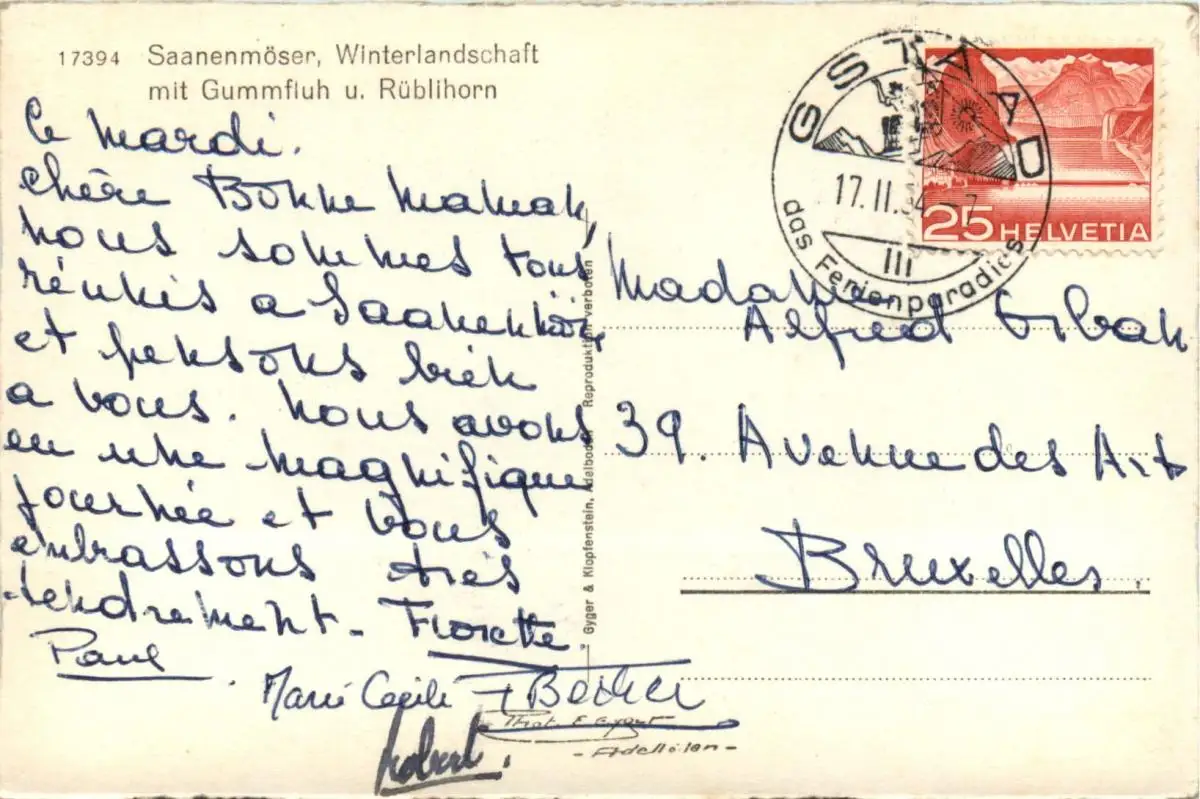 17394 Saanenmöser, Winterlandschaft
mit Gummfluh u. Rüblihorn
Ce Mardi.
Chère Bonne Maman,
nous sommes tous
réunis a Saanenmöser
et pensons bien
a vous. Nous avons
eu une magnifique
journée et vous
embrassons très
tendrement. Florette.
Paul
Marie Cecile
Robert.
Gyger & Klopfenstein, Adelboden Reproduktion verboten
Phot. E. Gyger
- Adelboden -
GSTAAD
17.II.54 - 7
III
das Ferienparadies
25 HELVETIA
Madame
Alfred Orban
39. Avenue des Arts
Bruxelles.